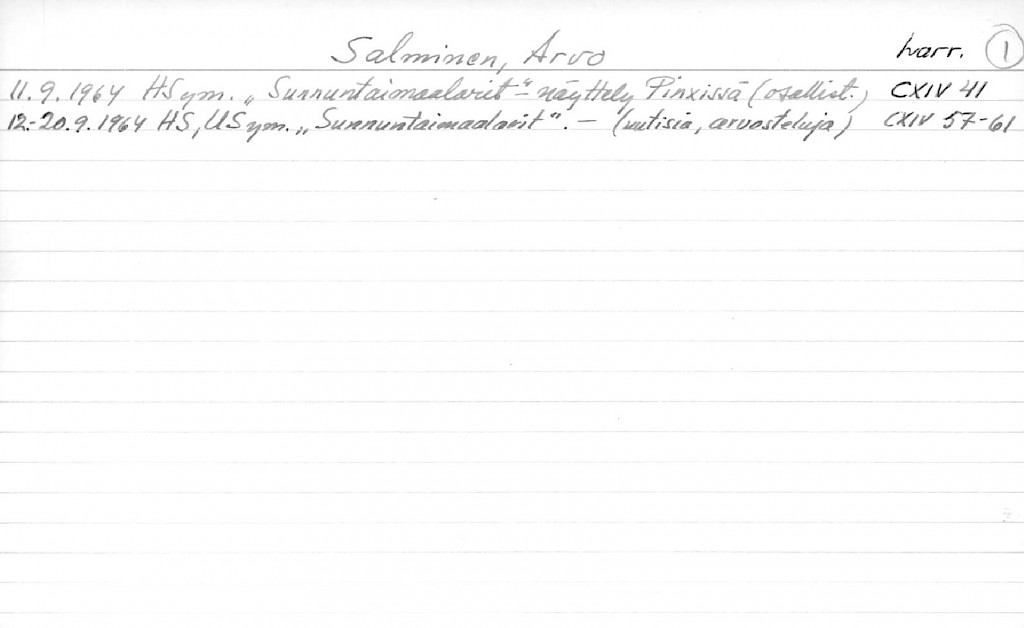 Salminen, Arvo harr. 1
11.9.1964 HS ym. „Sunnuntaimaalarit“-näyttely Pinxissä (osallist.) CXIV 41
12.-20.9.1964 HS, US ym. „Sunnuntaimaalarit“. — (uutisia, arvosteluja) CXIV 57-61